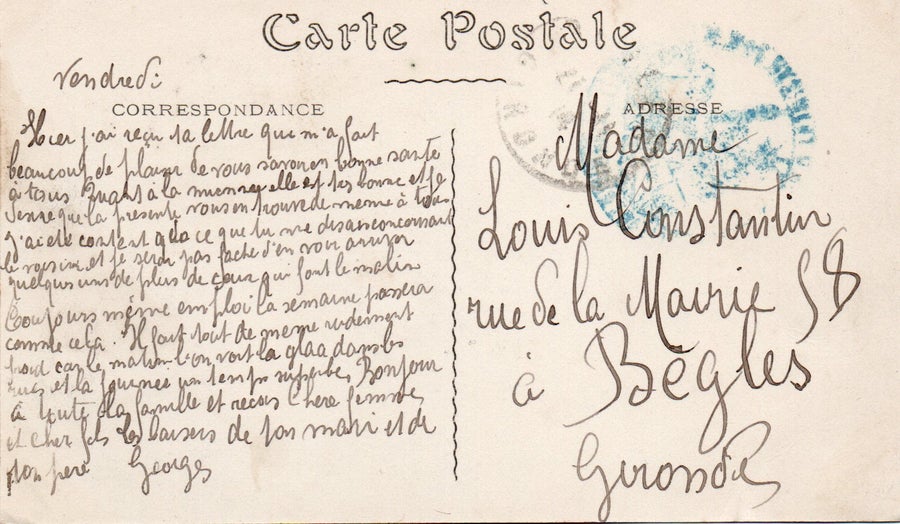 Carte Postale
Vendredi
CORRESPONDANCE
Hier j'ai reçu ta lettre qui m'a fait
beaucoup de plaisir de vous savoir en bonne santé
à tous Quant à la mienne elle est tes bonne et je
pense que la présente vous en trouve de même à tous
J'ai été content qua ce que tu me dis en concernant
le voisin et je serai pas faché d'en voir arriver
quelques uns de plus de ceux qui font le malin
Toujours même emploi la semaine passera
comme cela. Il fait tout de meme rudement
froid car le matin l'on voit la glaa dans les
rues et la journée un temps superbe. Bonjour
à toute la famille et recois Chere femme
et Cher fils les baisers de ton mari et de
ton pere Georges
ADRESSE
Madame
Louis Constantin
rue de la Mairie 58
à Bègles
Gironde